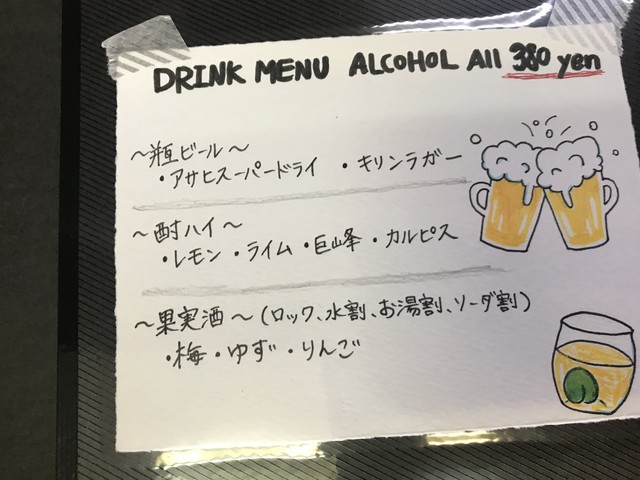 DRINK MENU ALCOHOL All 380 yen
～瓶ビール～
・アサヒスーパードライ ・キリンラガー
～酎ハイ～
・レモン・ライム・巨峰・カルピス
～果実酒～(ロック、水割、お湯割、ソーダ割)
・梅・ゆず・りんご